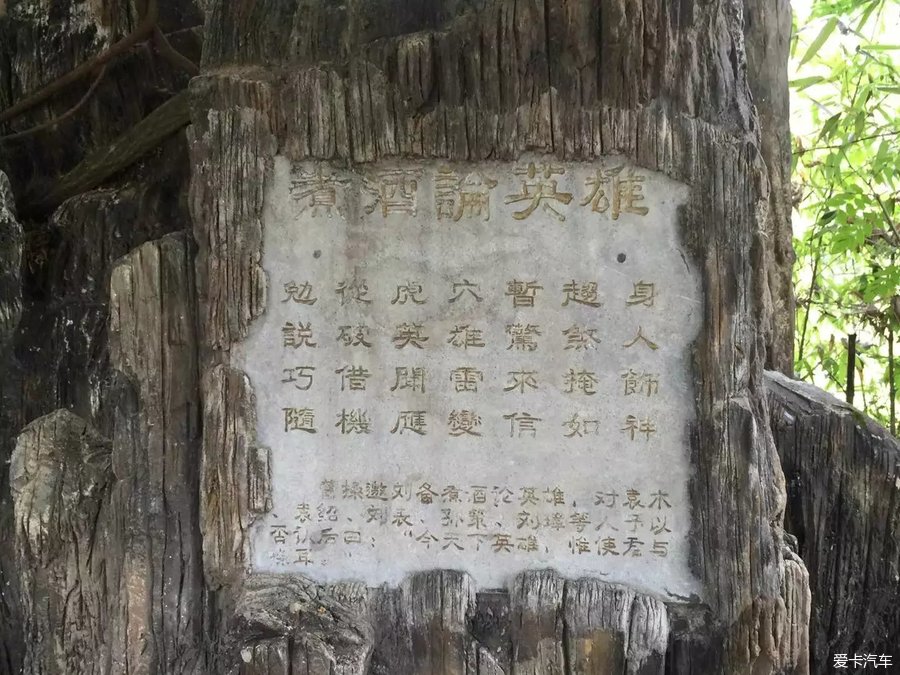 煮酒論英雄
勉從虎穴暫趨身
説破英雄驚煞人
巧借聞雷來掩飾
隨機應變信如神
曹操邀刘备煮酒论英雄，对袁术
、袁绍、刘表、孙策、刘璋等人予以
否认后曰：“今天下英雄，惟使君与
操耳。
爱卡汽车